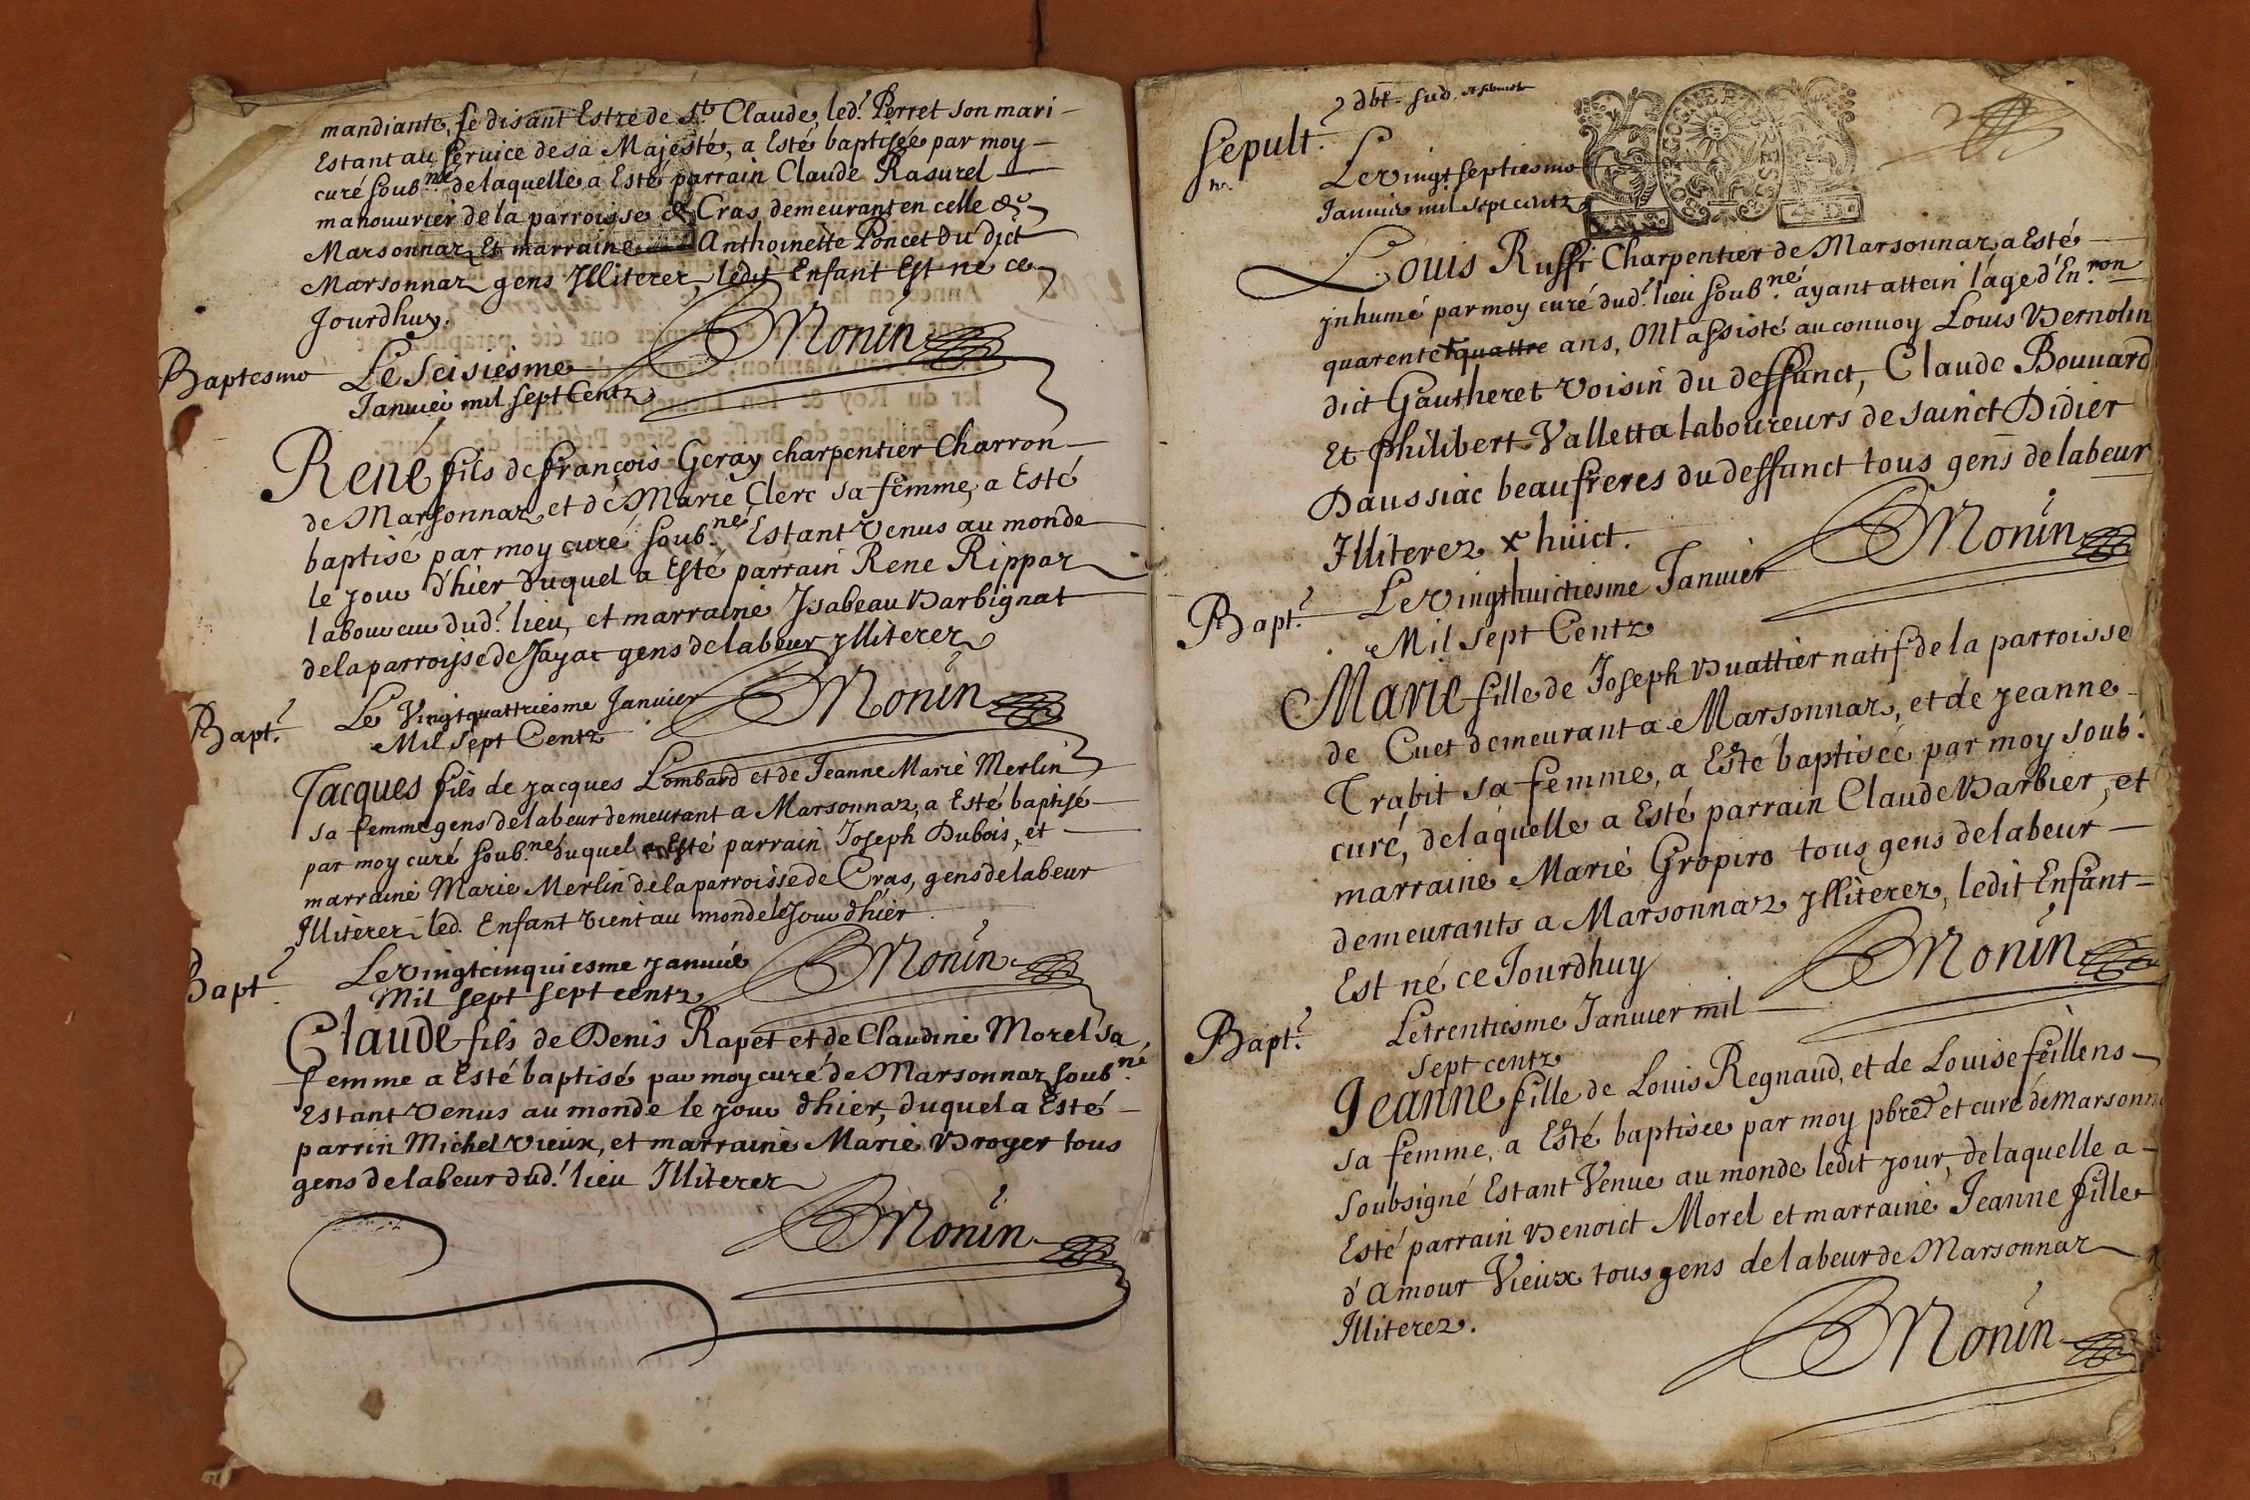 mandiante, se disant Estre de St Claude, led.t Perret son mari
Estant au seruice de sa Majesté, a Esté baptisée par moy
curé soub.né de laquelle a Esté parrain Claude Rasurel
manouurier de la parroisse de Cras demeurant en celle de
Marsonnaz Et marraine Anthoinette Poncet du dict
Marsonnaz gens Illiterez, ledit Enfant Est né ce
Jourdhuy.
Monin
Baptesme
Le Seisiesme
Januier mil sept Centz
René fils de françois Geray charpentier Charron
de Marsonnaz et de Marie Clerc sa femme, a Esté
baptisé par moy curé soub.né Estant Venus au monde
le jour d'hier duquel a Esté parrain Rene Rippaz
laboureur dud.t lieu, et marraine Isabeau Barbignat
de la parroisse de Jayat gens de labeur ylliterez
Monin
Bapt.e
Le Vingtquattriesme Januier
Mil sept Centz
Jacques fils de jacques Lombard et de Jeanne Marie Merlin
sa femme gens de labeur demeurant a Marsonnaz, a Esté baptisé
par moy curé soub.né duquel a Esté parrain Joseph Dubois, et
marraine Marie Merlin de la parroisse de Cras, gens de labeur
Illiterez led. Enfant vient au monde le Jour d'hier
Monin
Bapt.e
Le vingtcinquiesme januié
Mil sept sept centz
Claude fils de Denis Rapet et de Claudine Morel sa
femme a Esté baptisé par moy curé de Marsonnaz soub.né
Estant Venus au monde le jour d'hier, duquel a Esté
parrin Michel Vieux, et marraine Marie Broyer tous
gens de labeur dud.t lieu Illiterez
Monin
Sepult.e
Le vingtseptiesme
Januier mil sept centz
Louis Ruffi Charpentier de Marsonnaz a Esté
jnhumé par moy curé dud.t lieu soub.né ayant attein l'age d'En.ron
quarente x quattre ans, Ont assisté au conuoy Louis Bernolin
dict Gautheret Voisin du deffunct, Claude Bouuard
Et Philibert Valletta laboureurs de sainct Didier
Daussiac beaufreres du deffunct tous gens de labeur
Illiterez x huict.
Monin
Bapt.e
Le Vingthuictiesme Januier
Mil sept Centz
Marie fille de Joseph Buattier natif de la parroisse
de Cuet demeurant a Marsonnaz, et de jeanne
Trabit sa femme, a Esté baptisée par moy soub.é
curé, de laquelle a Esté parrain Claude Barbier, et
marraine Marie Gropiro tous gens de labeur
demeurants a Marsonnaz ylliterez, ledit Enfant
Est né ce Jourdhuy
Monin
Bapt.e
Le trentiesme Januier mil
sept centz
Jeanne fille de Louis Regnaud, et de Louise feillens
sa femme, a Esté baptisée par moy pbre et curé de Marsonn
soubsigné Estant Venue au monde ledit jour, de laquelle a
Esté parrain Benoict Morel et marraine Jeanne fille
d'amour Vieux tous gens de labeur de Marsonnaz
Illiterez.
Monin